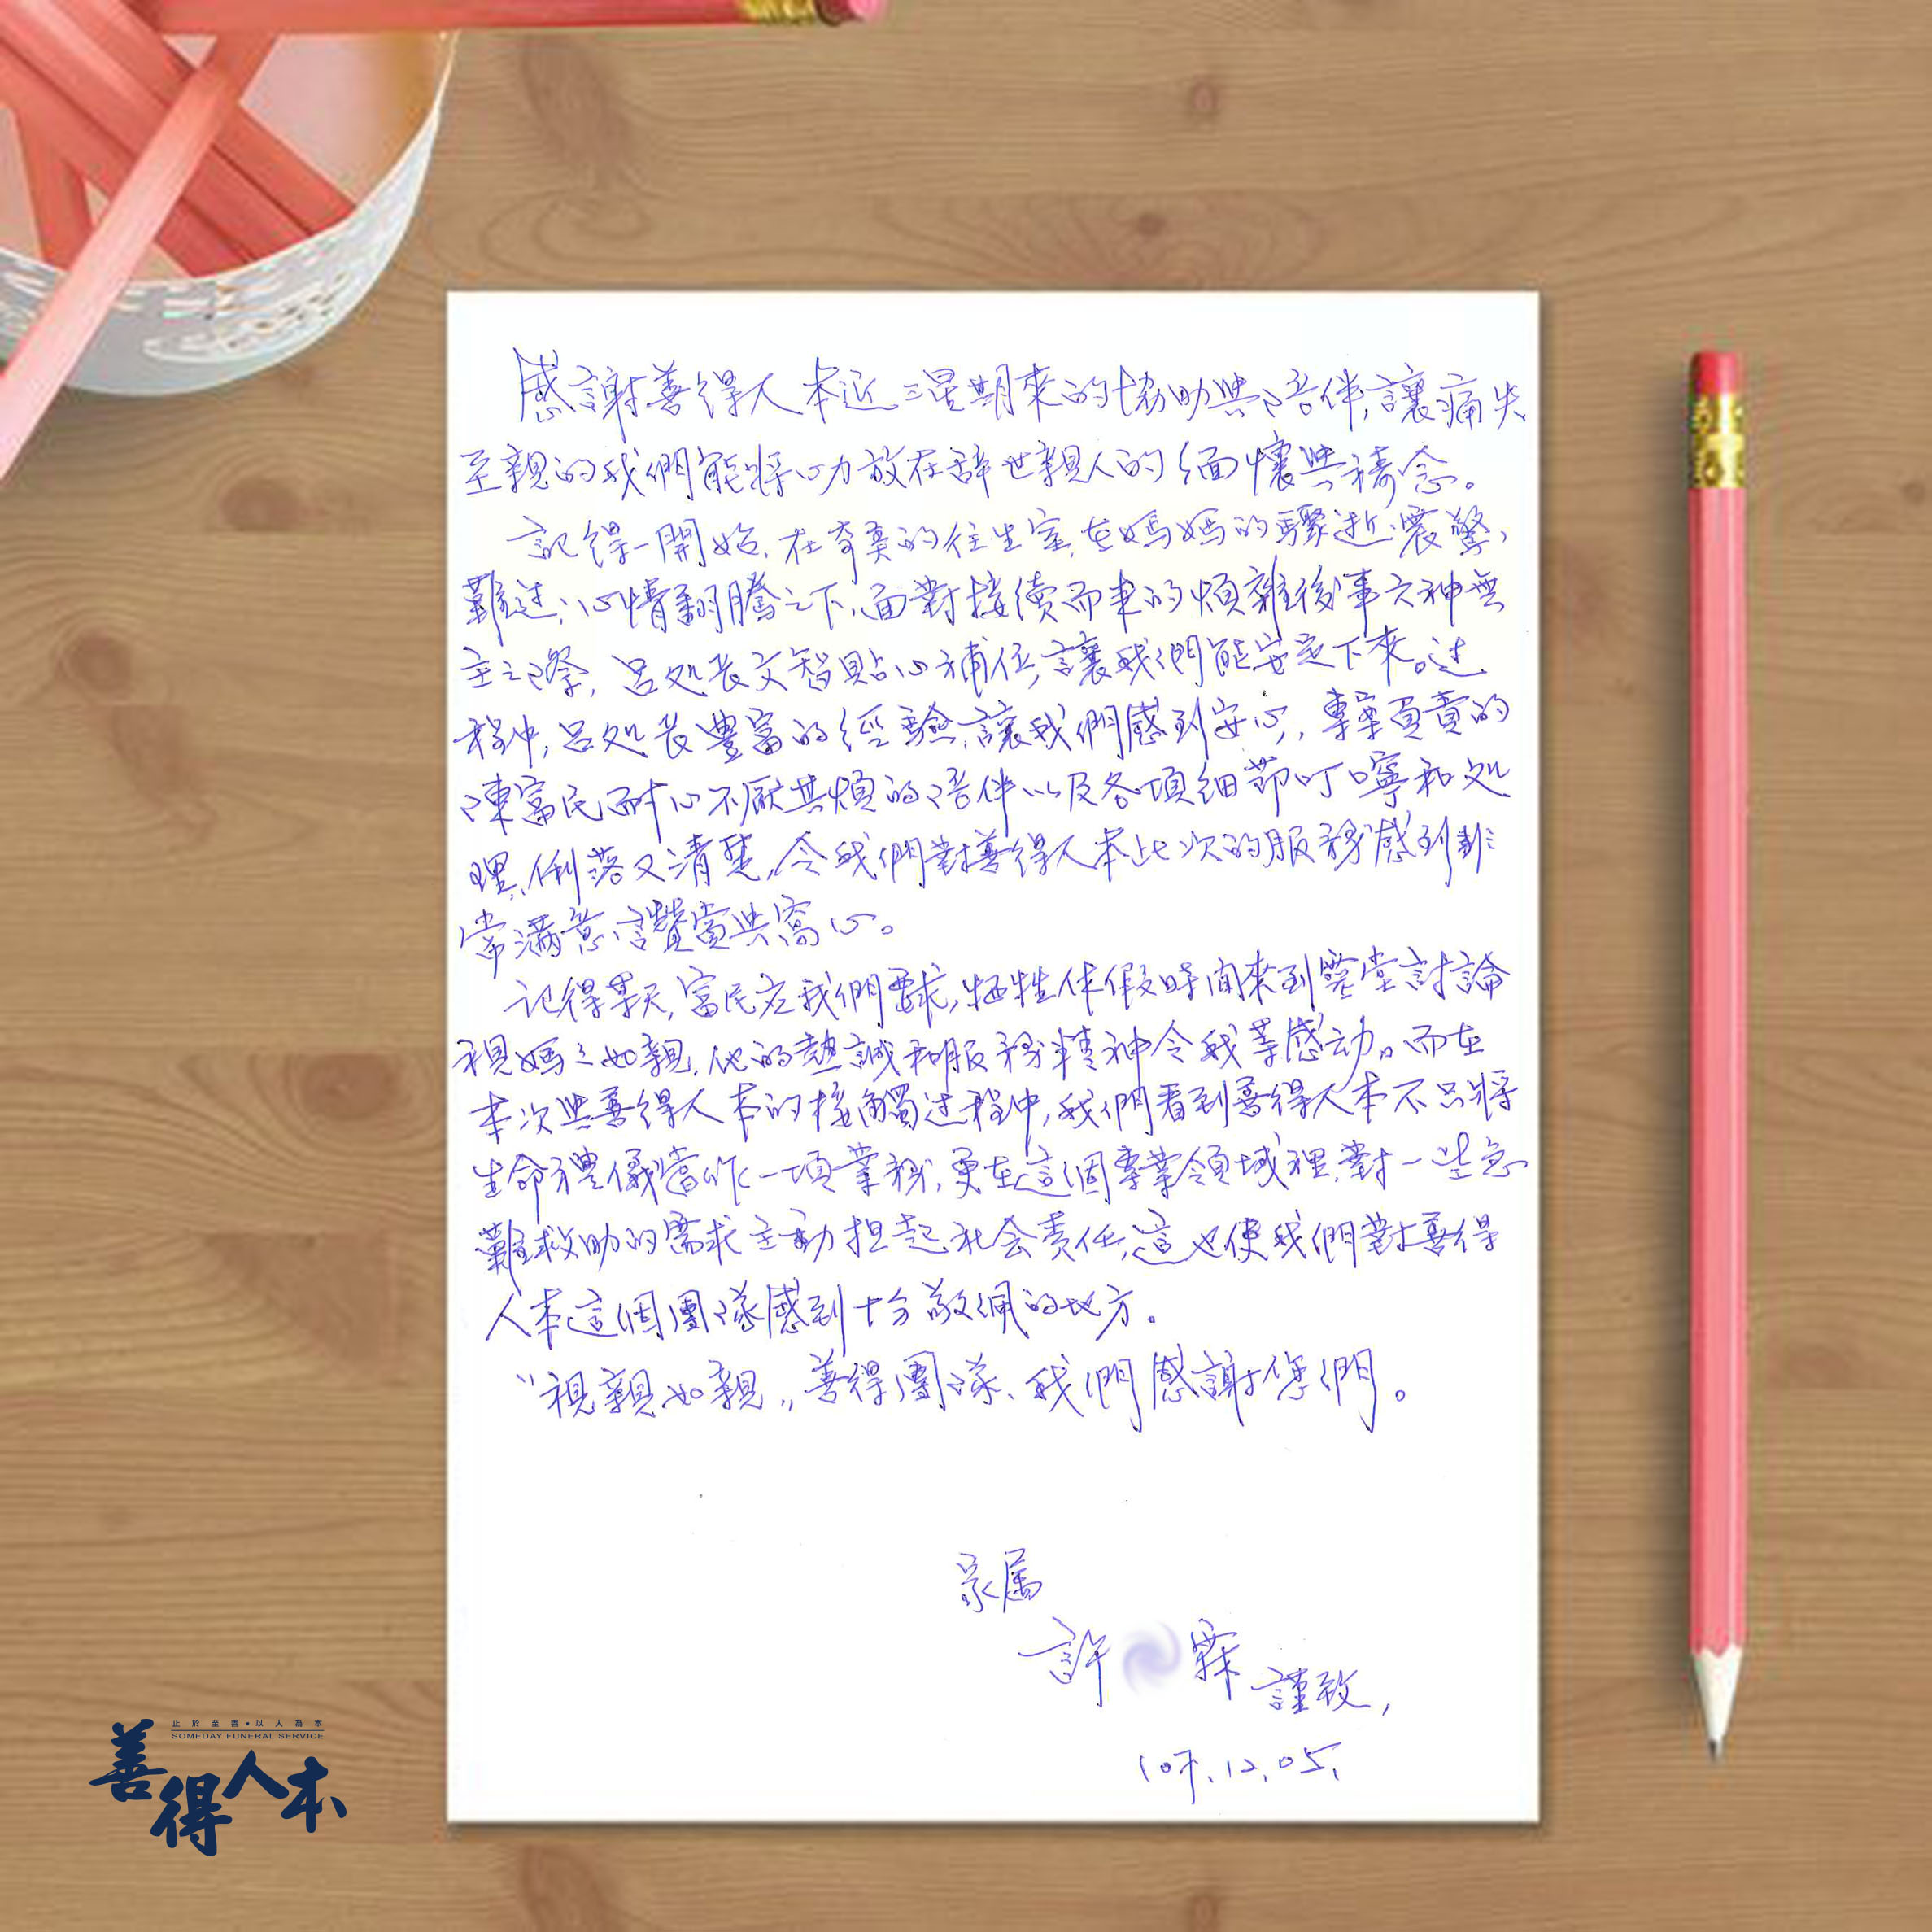 感謝善得人本近三星期來的協助與陪伴,讓痛失
至親的我們能將心力放在辞世親人的緬懷與禱念。
記得一開始,在奇美的往生室,在媽媽的驟逝、震驚、
難过、心情翻騰之下,面對接續而來的煩雜後事六神無
主之際,呂処長文智貼心補位,讓我們能安定下來。过
程中,呂処長豐富的經驗,讓我們感到安心,專業負責的
陳富民耐心不厭其煩的陪伴以及各項細節叮嚀和処
理,俐落又清楚,令我們對善得人本此次的服務感到非
常滿意、讚賞與窩心。
记得某天,富民应我們要求,牺牲休假时间來到靈堂討論
視媽之如親,他的熱誠和服務精神令我等感动。而在
本次與善得人本的接觸过程中,我們看到善得人本不只將
生命禮儀當作一項業務,更在這個專業領域裡,對一些急
難救助的需求主動担起社会責任,這也使我們對善得
人本這個團隊感到十分敬佩的地方。
"視親如親"善得團隊、我們感謝您們。
家属
許 霖 謹致,
107.12.05.
止於至善・以人為本
SOMEDAY FUNERAL SERVICE
善得人本